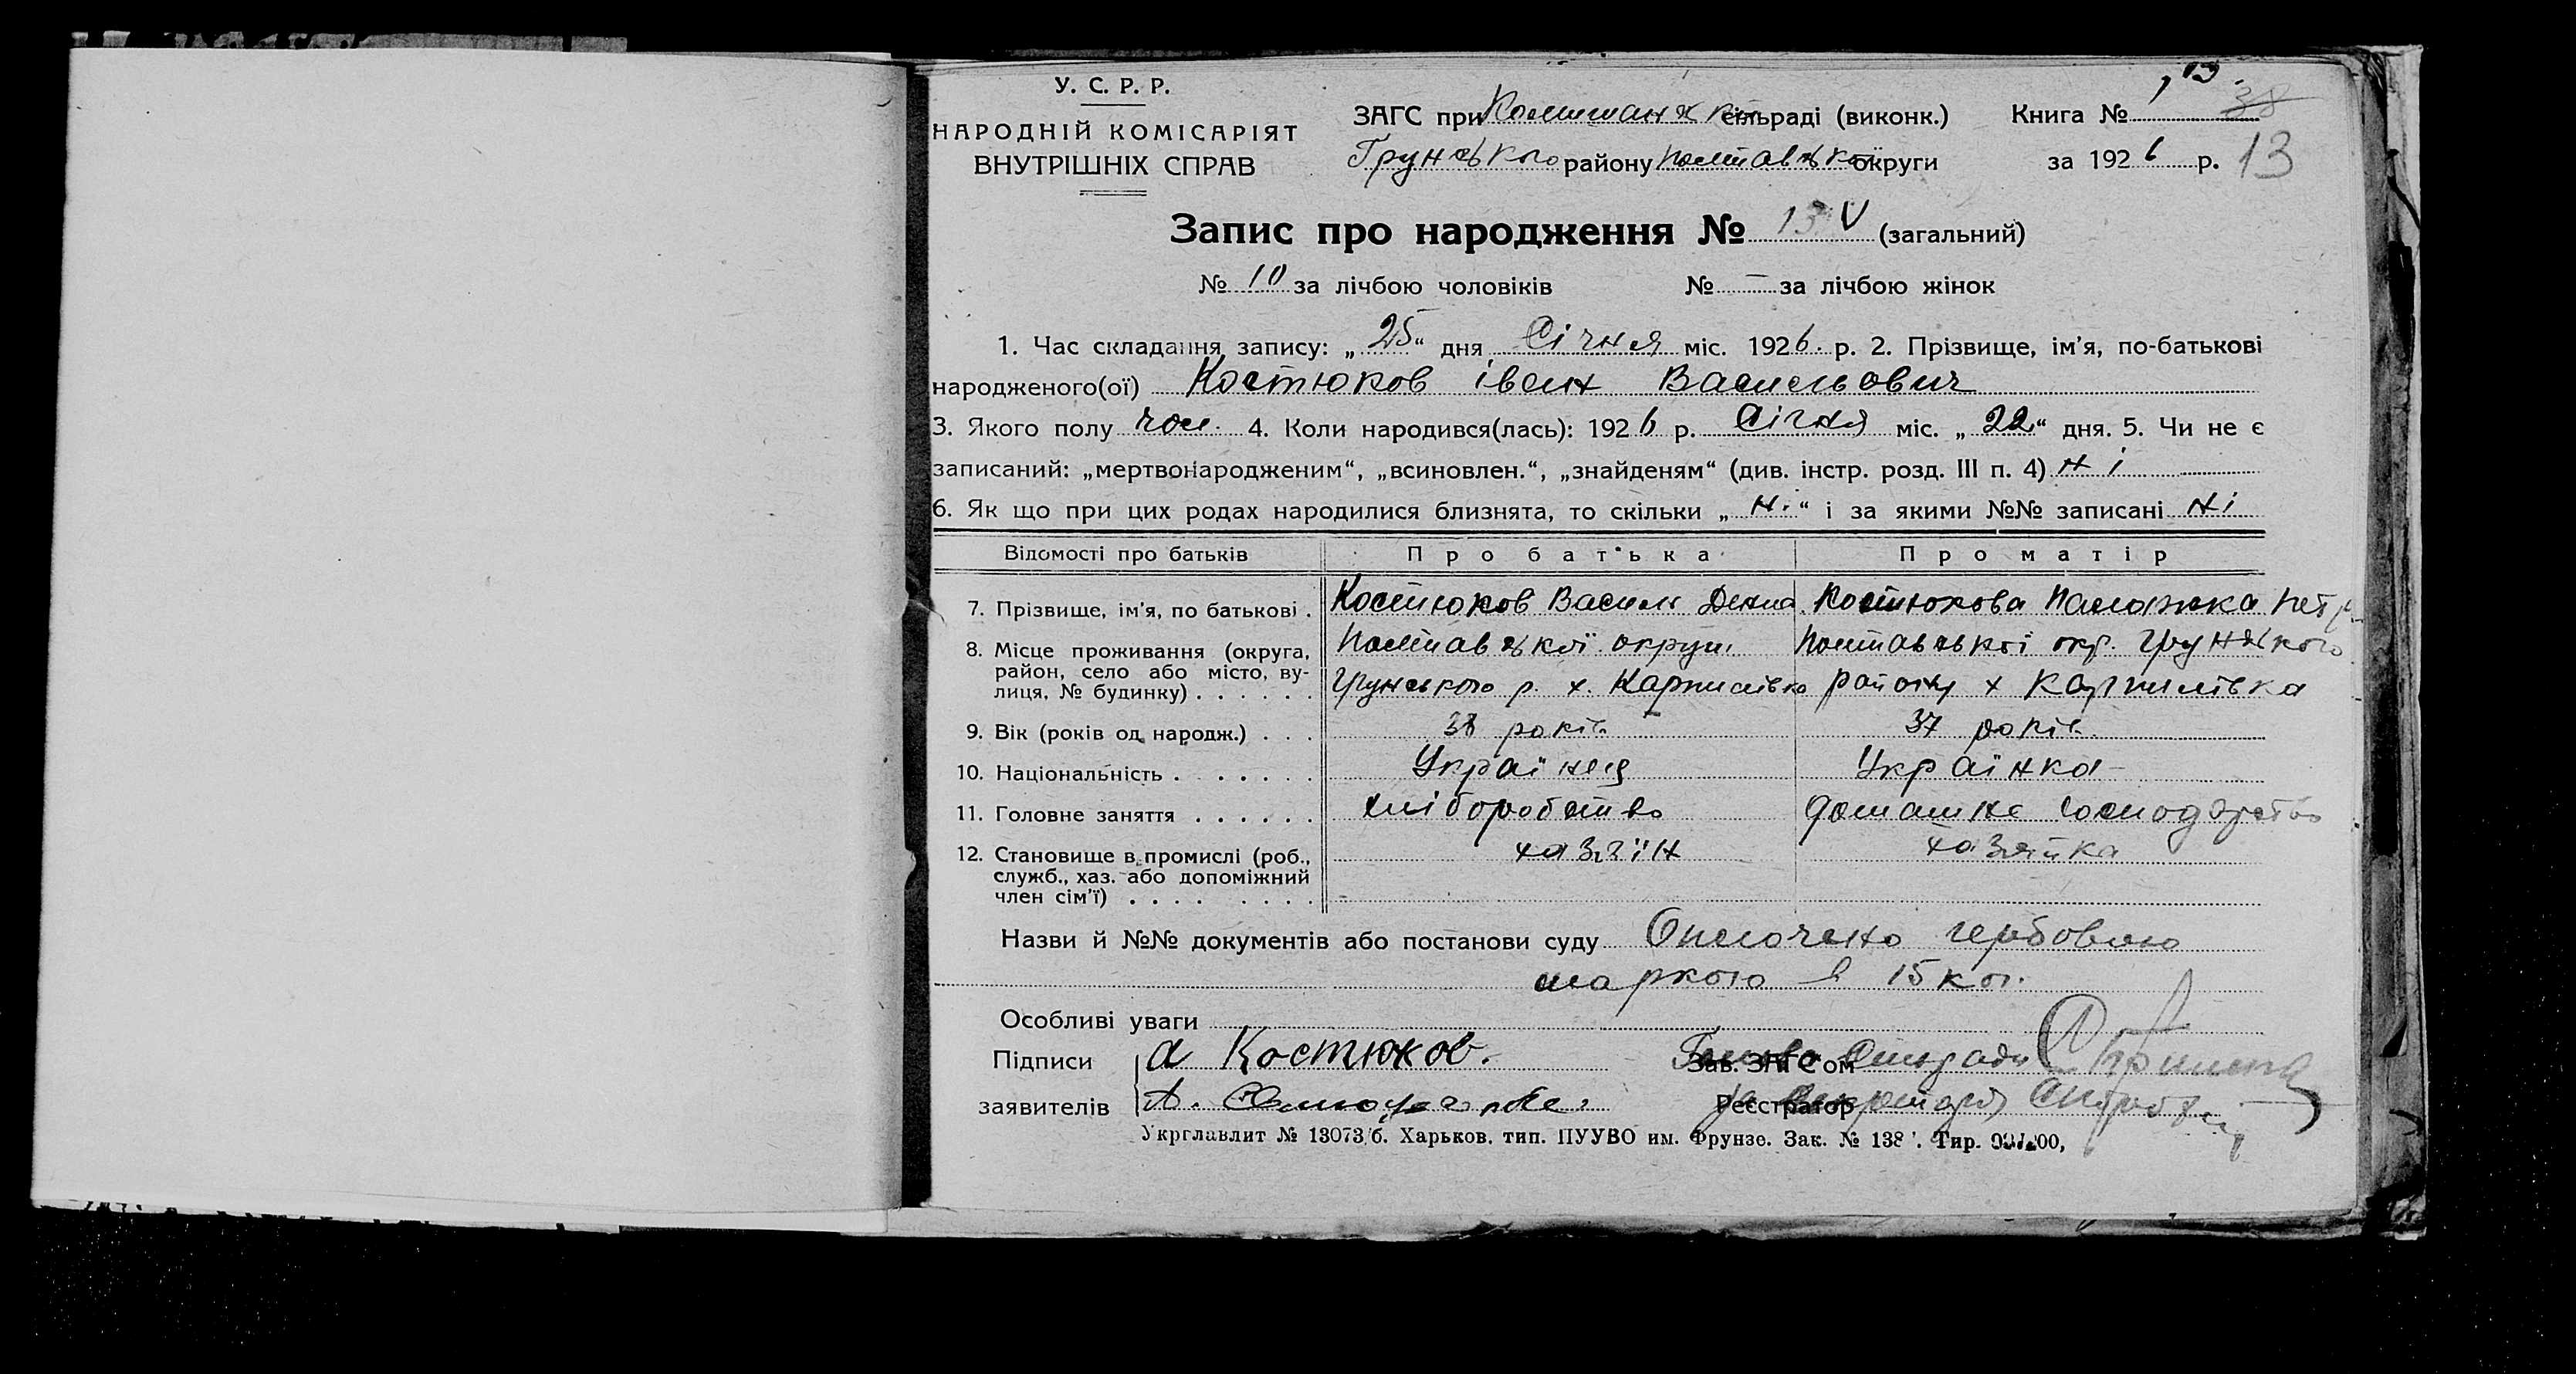 У. С. Р. Р.
НАРОДНІЙ КОМІСАРІЯТ
ВНУТРІШНІХ СПРАВ
ЗАГС при сільраді (виконк.)
Грунського району Полтавської округи
Книга № 38
за 1926 р. 13
Запис про народження № 13 V (загальний)
№ 10 за лічбою чоловіків № — за лічбою жінок
1. Час складання запису: „25“ дня Січня міс. 1926. р. 2. Прізвище, ім’я, по-батькові
народженого(ої) Костюков іван Васильович
3. Якого полу чол. 4. Коли народився(лась): 1926 р. Січня міс. „22“ дня. 5. Чи не є
записаний: „мертвонародженим“, „всиновлен.“, „знайденям“ (див. інстр. розд. III п. 4) ні
6. Як що при цих родах народилися близнята, то скільки „ні“ і за якими №№ записані ні
Відомості про батьків Про батька Про матір
7. Прізвище, ім’я, по батькові . Костюков Василь Костюкова Палажка Петр
8. Місце проживання (округа, район, село або місто, вулиця, № будинку) . . . . . .
Полтавської округи Полтавської окр. Грунського
Грунського р. х. Карпилівка району х Карпилівка
9. Вік (років од народж.) . . . 38 років 37 років
10. Національність . . . . . . . Українец Українка
11. Головне заняття . . . . . . хліборобство домашнє господарство
12. Становище в промислі (роб., служб., хаз. або допоміжний член сім’ї) . . . . . . . . хазяїн хазяйка
Назви й №№ документів або постанови суду Оплочено гербовою
маркою в 15 коп.
Особливі уваги
Підписи а Костюков.
заявителів А.
Зав. ЗАГС’ом Голова Сільради
Реєстратор
Укрглавлит № 13073/б. Харьков. тип. ПУУВО им. Фрунзе. Зак. № 138 . Тир.